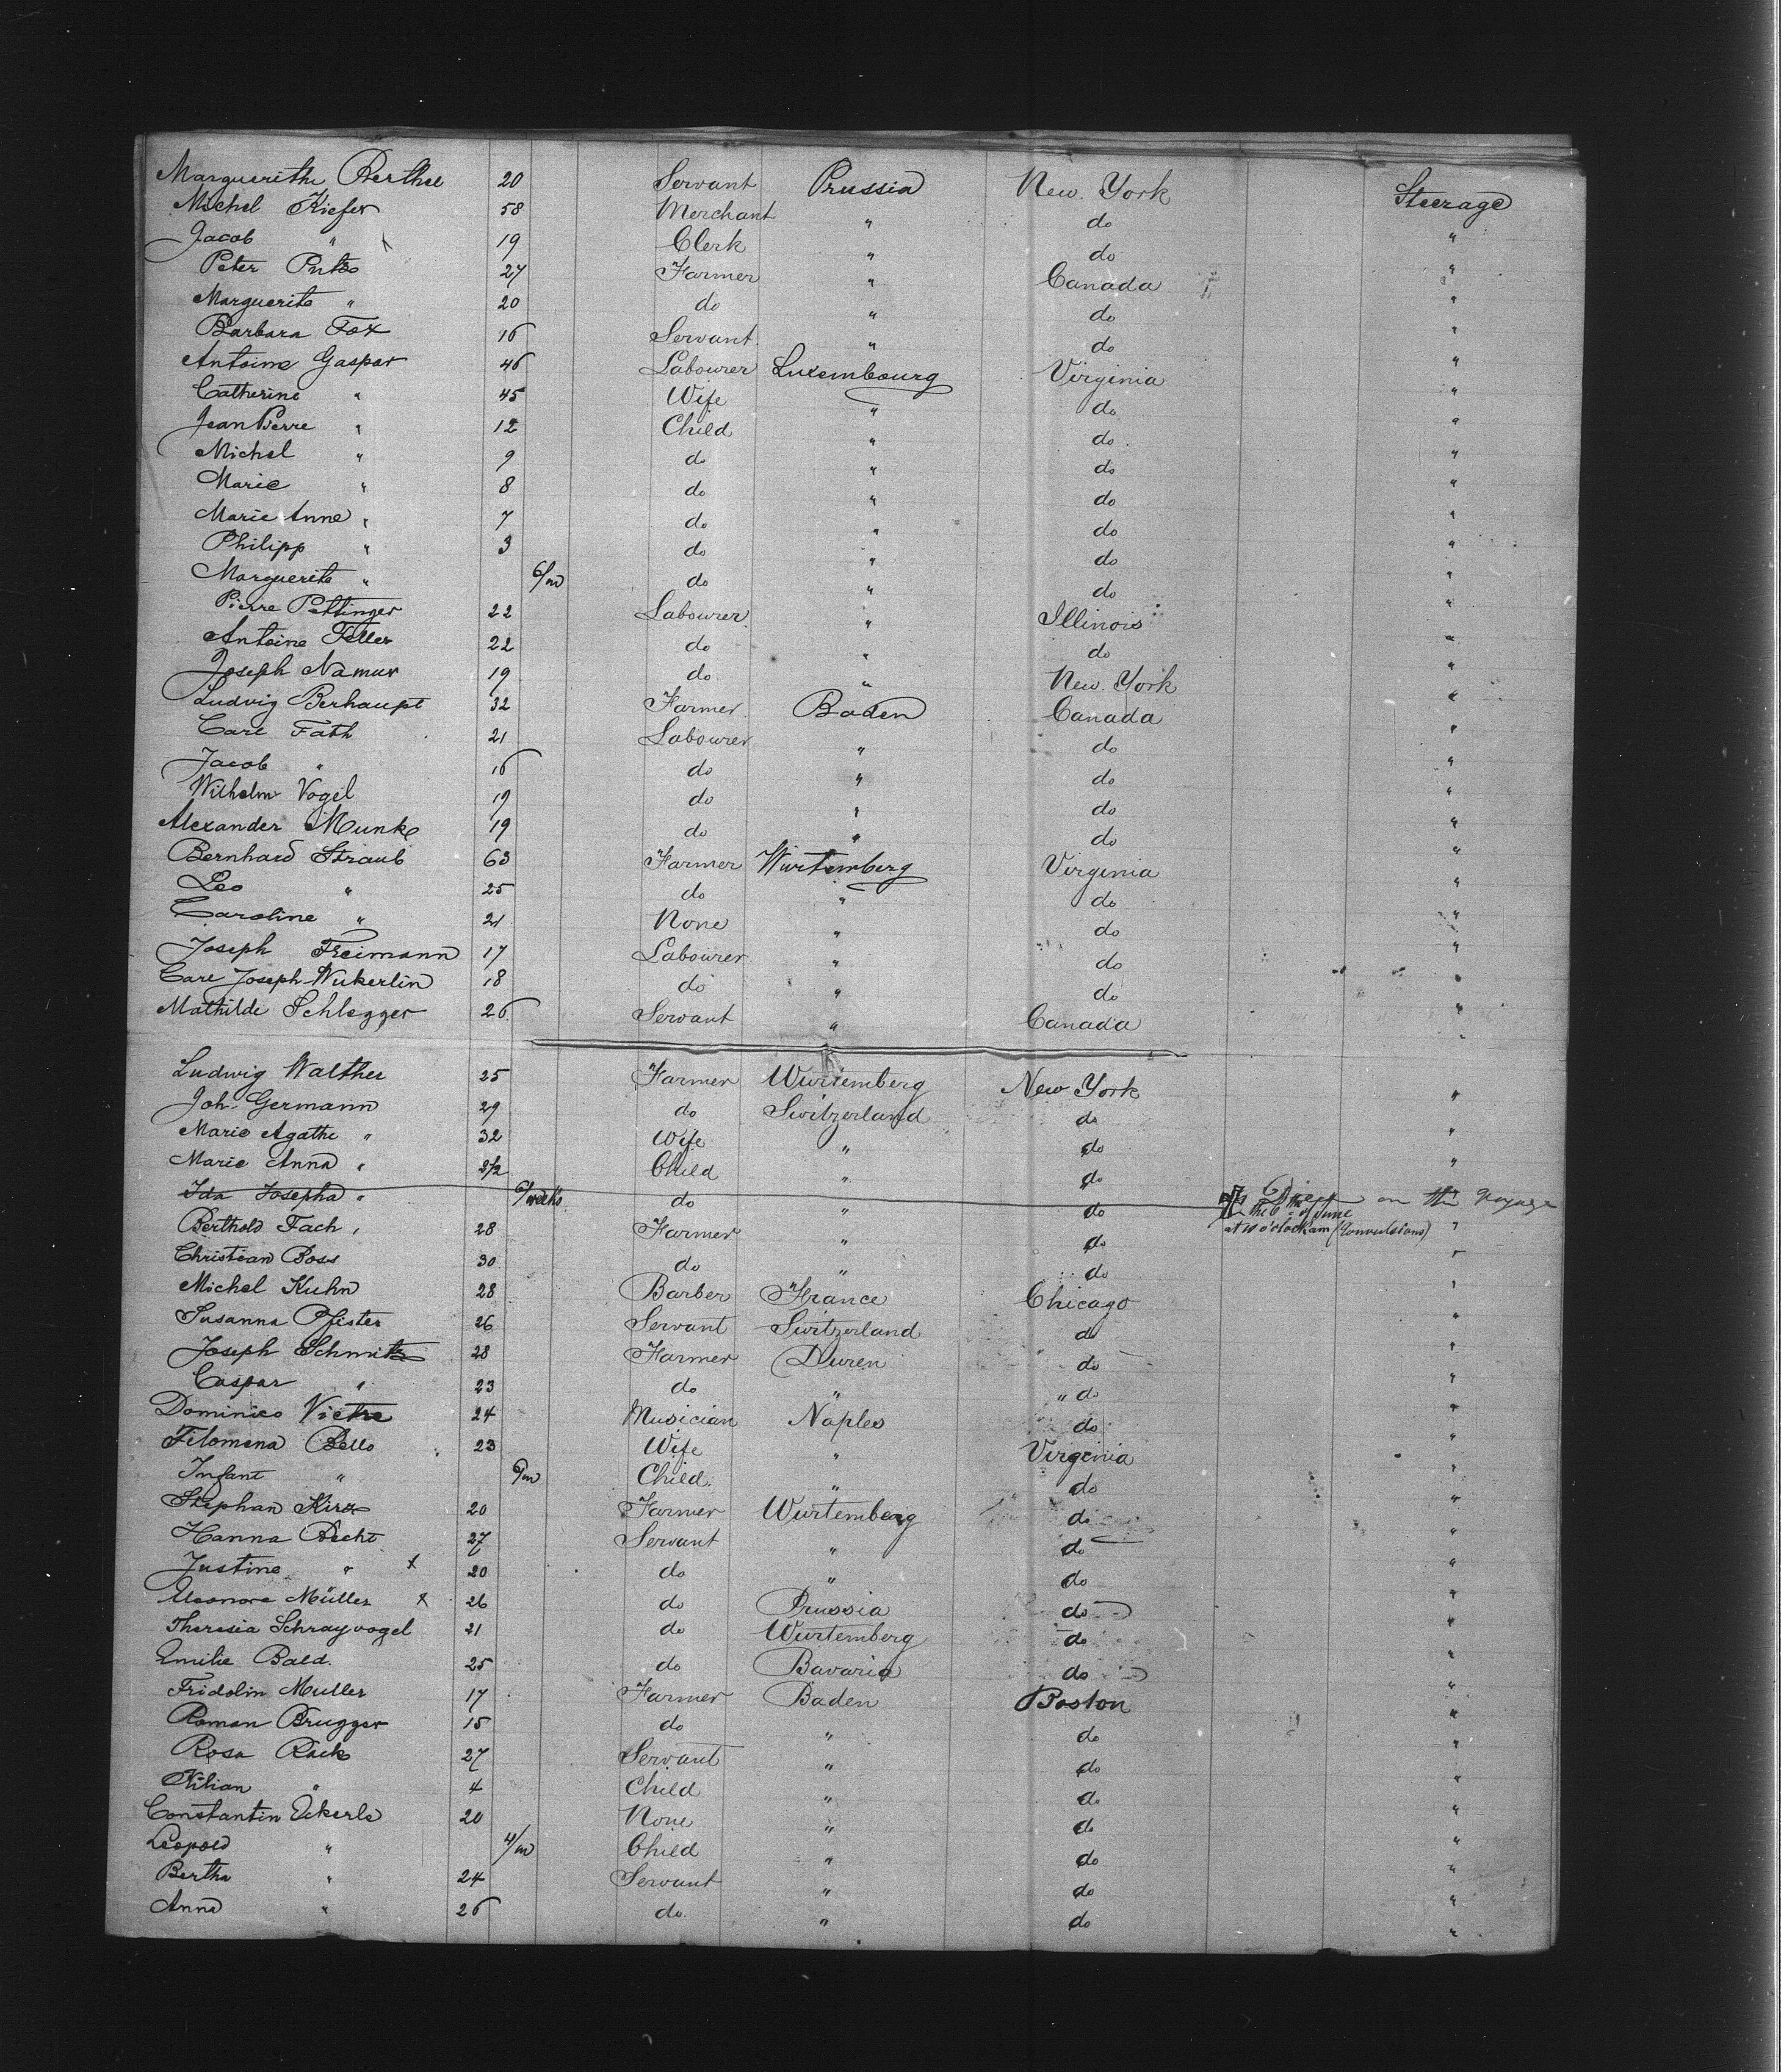 Marguerithe Berthel 20 Servant Prussia New York Steerage
Michel Kiefer 58 Merchant " do "
Jacob " 19 Clerk " do "
Peter 27 Farmer " Canada "
Marguerite " 20 do " do "
Barbara Fox 16 Servant " do "
Antoine Gaspar 46 Labourer Luxembourg Virginia "
Catherine " 45 Wife " do "
Jean Pierre " 12 Child " do "
Michel " 9 do " do "
Marie " 8 do " do "
Marie Anne " 7 do " do "
Philipp " 3 do " do "
Marguerite " 6/m do " do "
Pierre Pettinger 22 Labourer " Illinois "
Antoine Feller 22 do " do "
Joseph Namur 19 do " New York "
Ludvig Berhaupt 32 Farmer Baden Canada "
Carl Fath 21 Labourer " do "
Jacob " 16 do " do "
Wilhelm Vogel 19 do " do "
Alexander Munk 19 do " do "
Bernhard Straub 63 Farmer Wurtemberg Virginia "
Leo " 25 do " do "
Caroline " 21 None " do "
Joseph Freimann 17 Labourer " do "
Carl Joseph Wukerlin 18 do " do "
Mathilde Schlegger 26 Servant " Canada "
Ludwig Walther 25 Farmer Wurtemberg New York "
Joh. Germann 29 do Switzerland do "
Marie Agathe " 32 Wife " do "
Marie Anna " 2 1/2 Child " do "
Ida Josepha " 6/weeks do " do Died on the voyage
the 6th of June
at 10 o'clock am (Convulsions)
Berthold Fach 28 Farmer " do "
Christian Boss 30 do " do "
Michel Kuhn 28 Barber France Chicago "
Susanna Pfister 26 Servant Switzerland do "
Joseph Schmitz 28 Farmer Duren do "
Caspar " 23 do " " do "
Dominico 24 Musician Naples do "
Filomena Bello 23 Wife " Virginia "
Infant " 6/m Child " do "
Stephan Kirz 20 Farmer Wurtemberg do "
Hanna Becht 27 Servant " do "
Justine " x 20 do " do "
Eleonore Müller x 26 do Prussia do "
Theresia Schrayvogel 21 do Wurtemberg do "
Emilie Bald. 25 do Bavaria do "
Fridolin Muller 17 Farmer Baden Boston "
Roman Brugger 15 do " do "
Rosa Rack 27 Servant " do "
Kilian " 4 Child " do "
Constantin Eckerle 20 None " do "
Leopold " 4/m Child " do "
Bertha " 24 Servant " do "
Anna " 26 do " do "